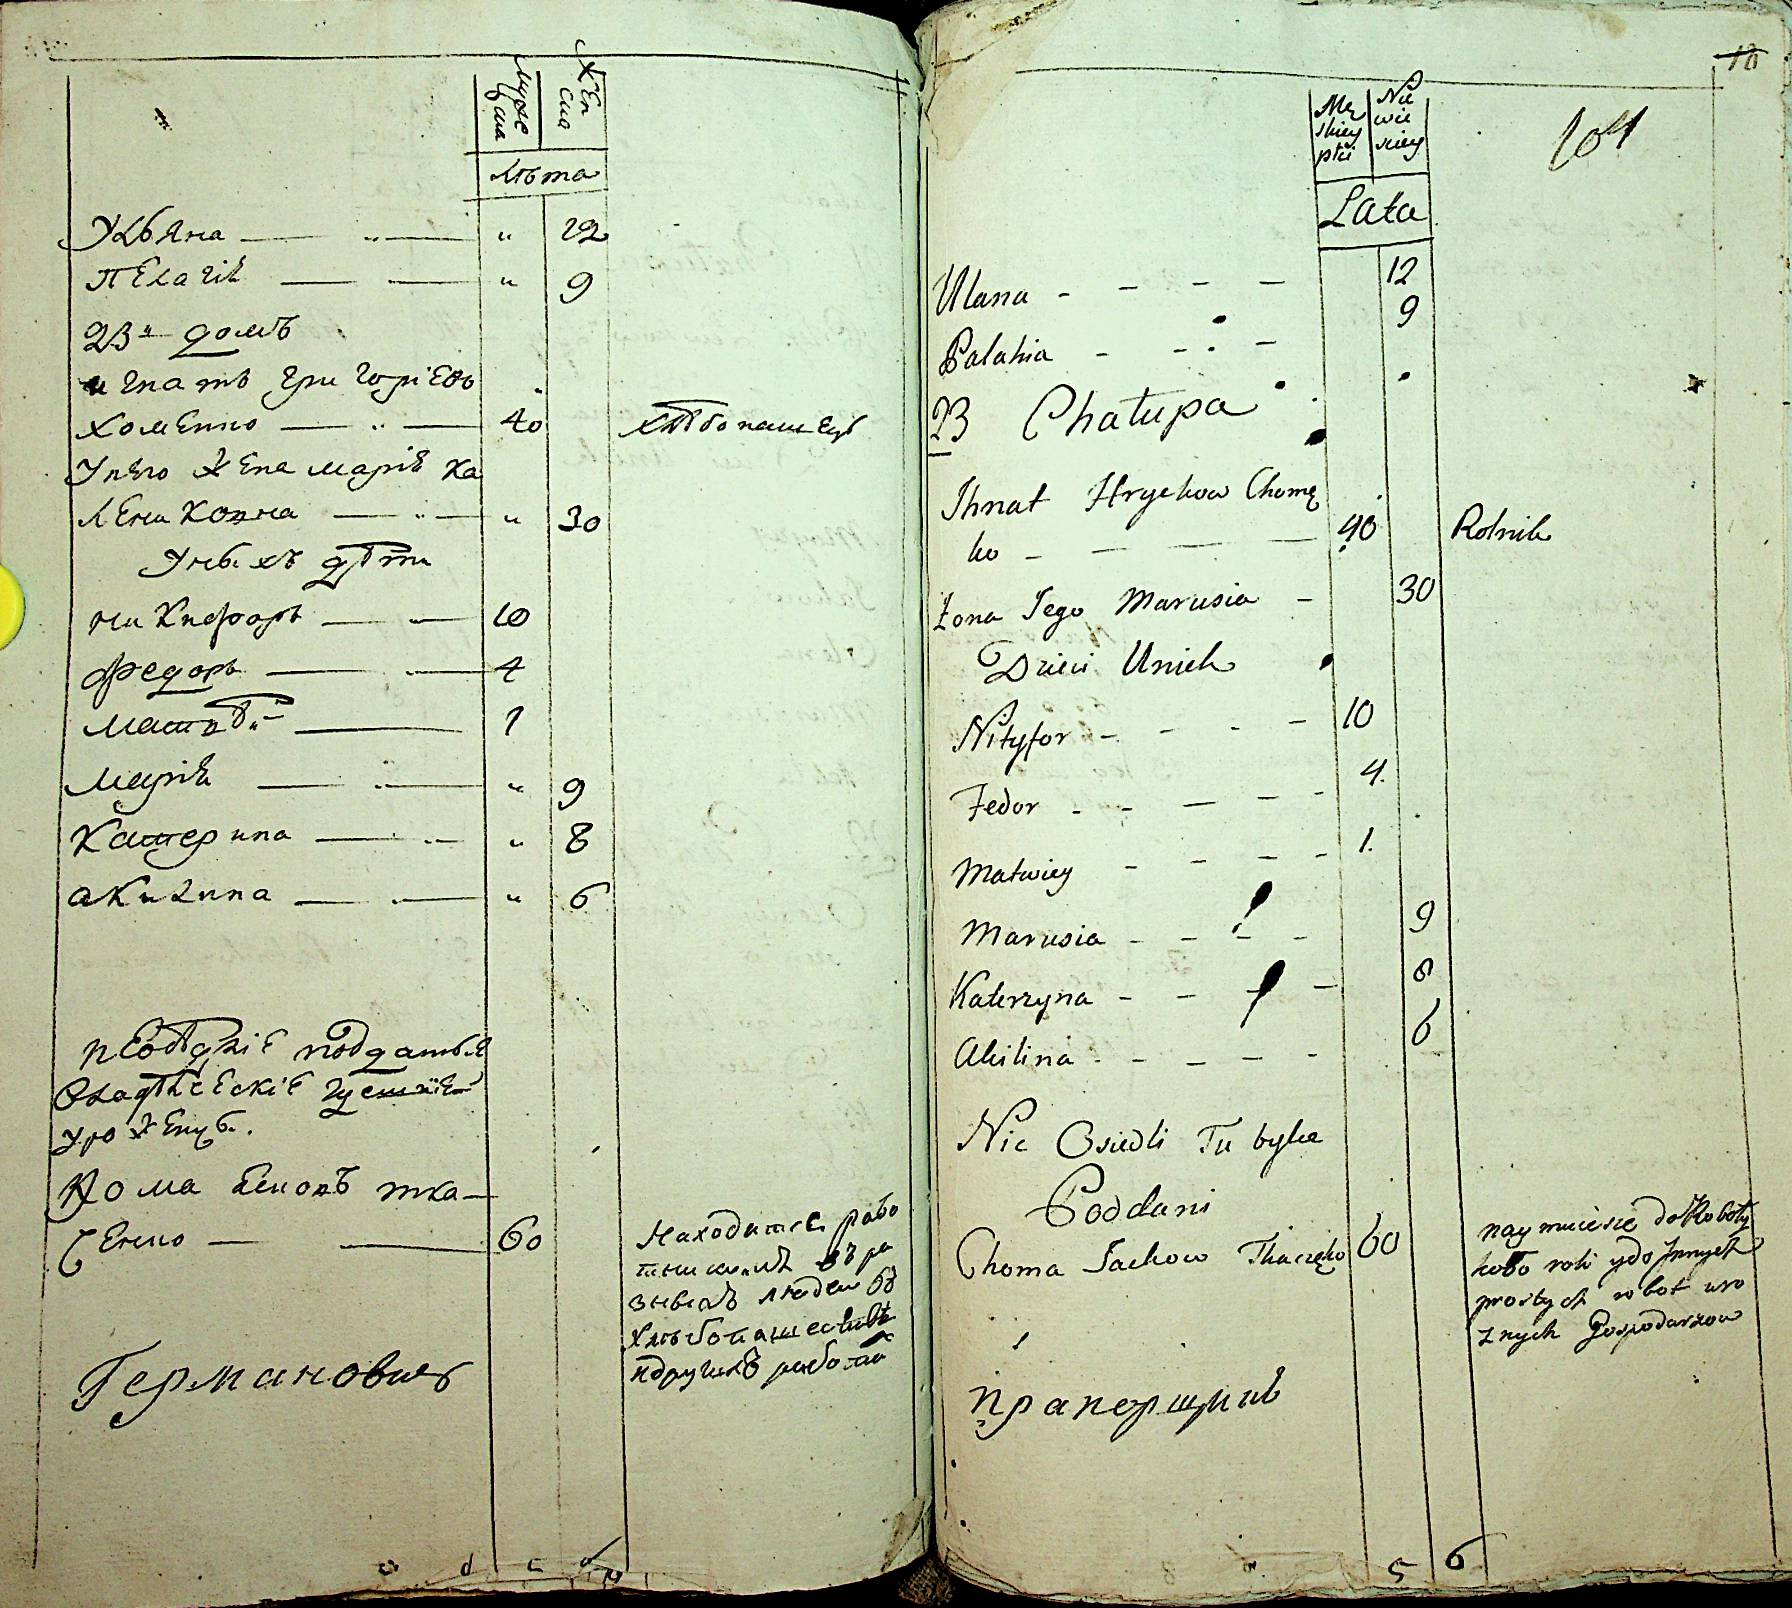 Мужеска
Женска
Лѣта
Ульяна — „ — „ 22
Пелагія — — „ 9
23й домъ
игнатъ григоріевъ
хоменко — „ — 40 хлѣбопашецъ
Унего жена марія ка
лениковна — „ — „ 30
Унихъ дѣти
никифоръ — 10
федоръ — 4
матвѣй — 1
марія — „ 9
катерина — „ 8
акилина — „ 6
подданые
владѣлескіе
уроженцы.
хома яковъ тка—
ченко — — 60
Находится рабо
людей въ
хлѣбопашествѣ
идругихъ работа
Германовичъ
10
104
Męskiey płci
Niewieściey
Lata
Ulana - - - - 12
Palahia - - - - 9
23 Chałupa
Ihnat Hryckow Chomę
ko - — — — 40 Rolnik
Żona Jego Marusia - 30
Dzieci Unich
Nikyfor - - - - 10
Fedor - - — - - 4.
Matwiey - - - - 1.
Marusia - - - - 9
Katerzyna - - - - 8
Akilina - - - - - 6
Nie Osiedli Tu byłce
Poddani
Choma Jackow Tkaczęko 60
naymuie się do Roboty
koło roli ydo Jnnych
prostych robot uro
znych Gospodarzow
прапорщикъ
5 6